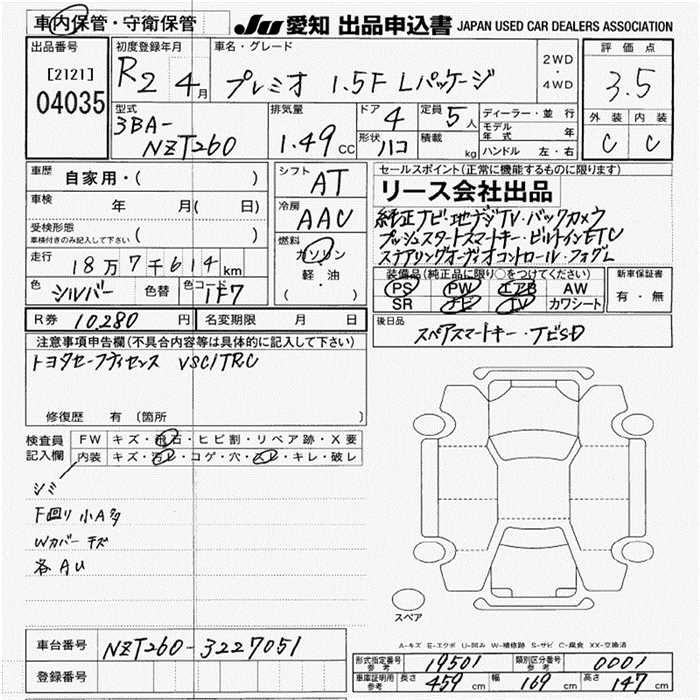 車内保管・守衛保管
JU 愛知 出品申込書 JAPAN USED CAR DEALERS ASSOCIATION
出品番号
[2121]
04035
初度登録年月
R2 4月
車名・グレード
プレミオ 1.5F Lパッケージ
2WD
・
4WD
評価点
3.5
外装 内装
C C
型式
3BA-
NZT260
排気量
1.49 CC
ドア 4
形状 ハコ
定員 5人
積載 kg
ディーラー・並行
モデル年式 年
ハンドル 左・右
車歴 自家用・( )
車検 年 月( 日)
受検形態
車検付きのみ記入して下さい ( )
走行 18万7千614km
色 シルバー 色替 色コード 1F7
シフト AT
冷房 AAC
燃料
ガソリン
軽・油
( )
セールスポイント(正常に機能するものに限ります)
リース会社出品
純正ナビ・地デジTV・バックカメラ
プッシュスタートスマートキー・ビルトインETC
ステアリングオーディオコントロール・フォグL
装備品(純正品に限り○をつけてください)
PS PW エアB AW
SR ナビ TV カワシート
新車保証書
有・無
R券 10,280 円 名変期限 月 日
後日品
スペアスマートキー・ナビSD
注意事項申告欄(不具合内容等は具体的に記入して下さい)
トヨタセーフティセンス VSC/TRC
修復歴 有 〔箇所 〕
検査員記入欄
FW キズ・飛石・ヒビ割・リペア跡・X要
内装 キズ・汚レ・コゲ・穴・スレ・キレ・破レ
シミ
下回り 小A多
Wカバー キズ
各AU
スペア
A-キズ E-エクボ U-凹み W-補修跡 S-サビ C-腐食 XX-交換済
車台番号 NZT260-3227051
登録番号
形式指定番号 参考 19501 類別区分番号 参考 0001
車庫証明用 参考 長さ 459cm 幅 169cm 高さ 147cm